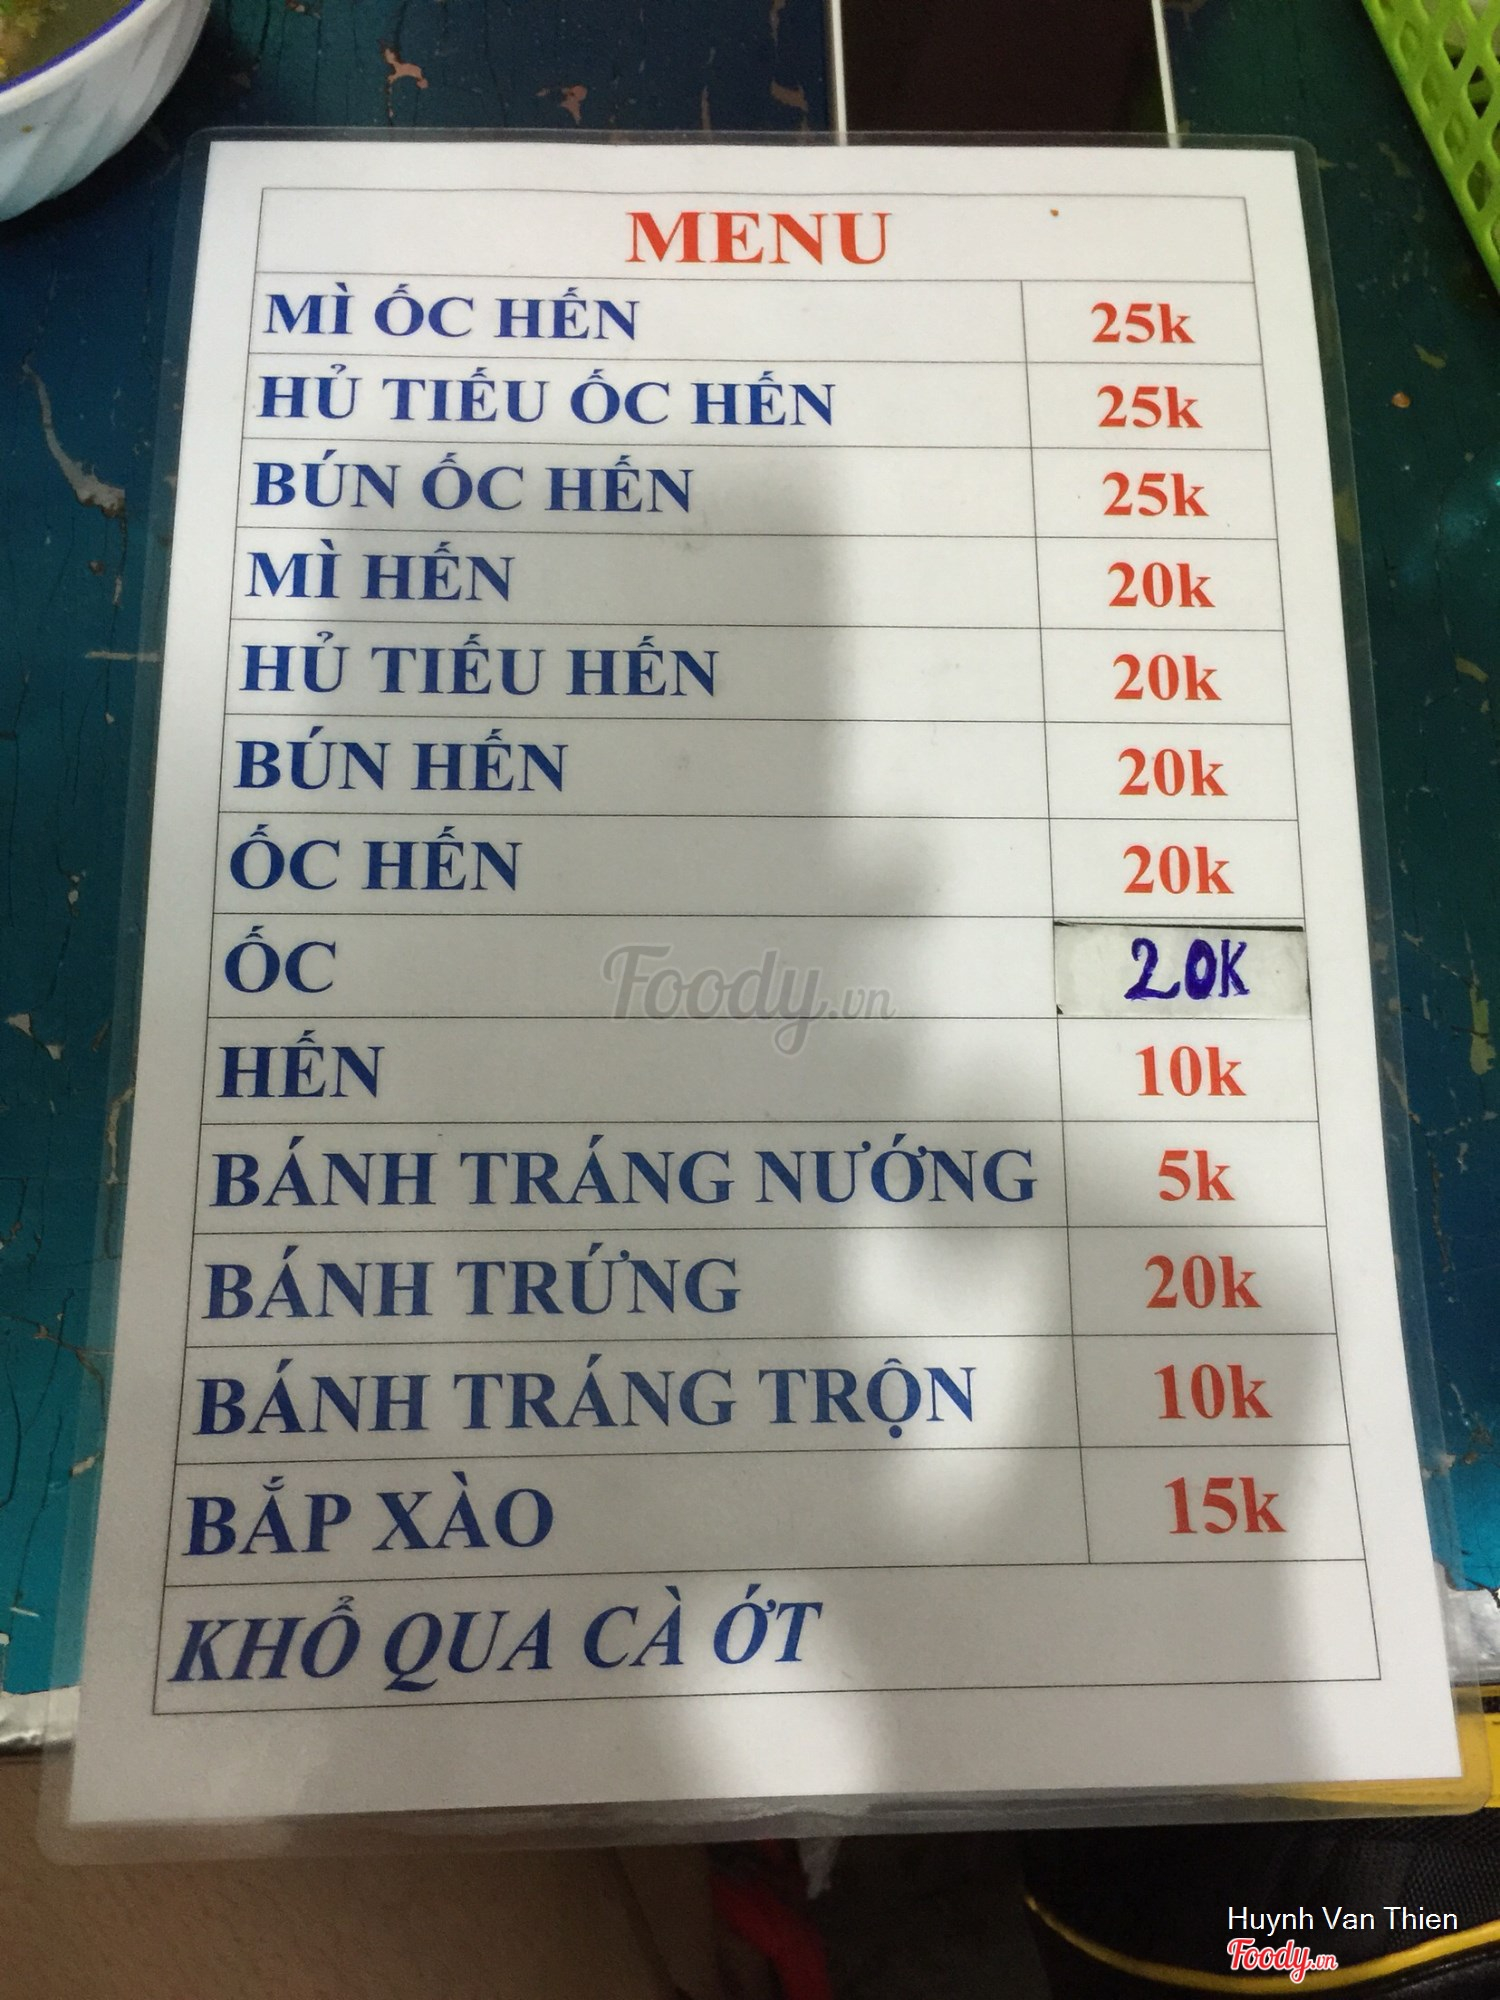 MENU
MÌ ỐC HẾN 25k
HỦ TIẾU ỐC HẾN 25k
BÚN ỐC HẾN 25k
MÌ HẾN 20k
HỦ TIẾU HẾN 20k
BÚN HẾN 20k
ỐC HẾN 20k
ỐC 20K
Foody.vn
HẾN 10k
BÁNH TRÁNG NƯỚNG 5k
BÁNH TRỨNG 20k
BÁNH TRÁNG TRỘN 10k
BẮP XÀO 15k
KHỔ QUA CÀ ỚT
Huynh Van Thien
Foody.vn